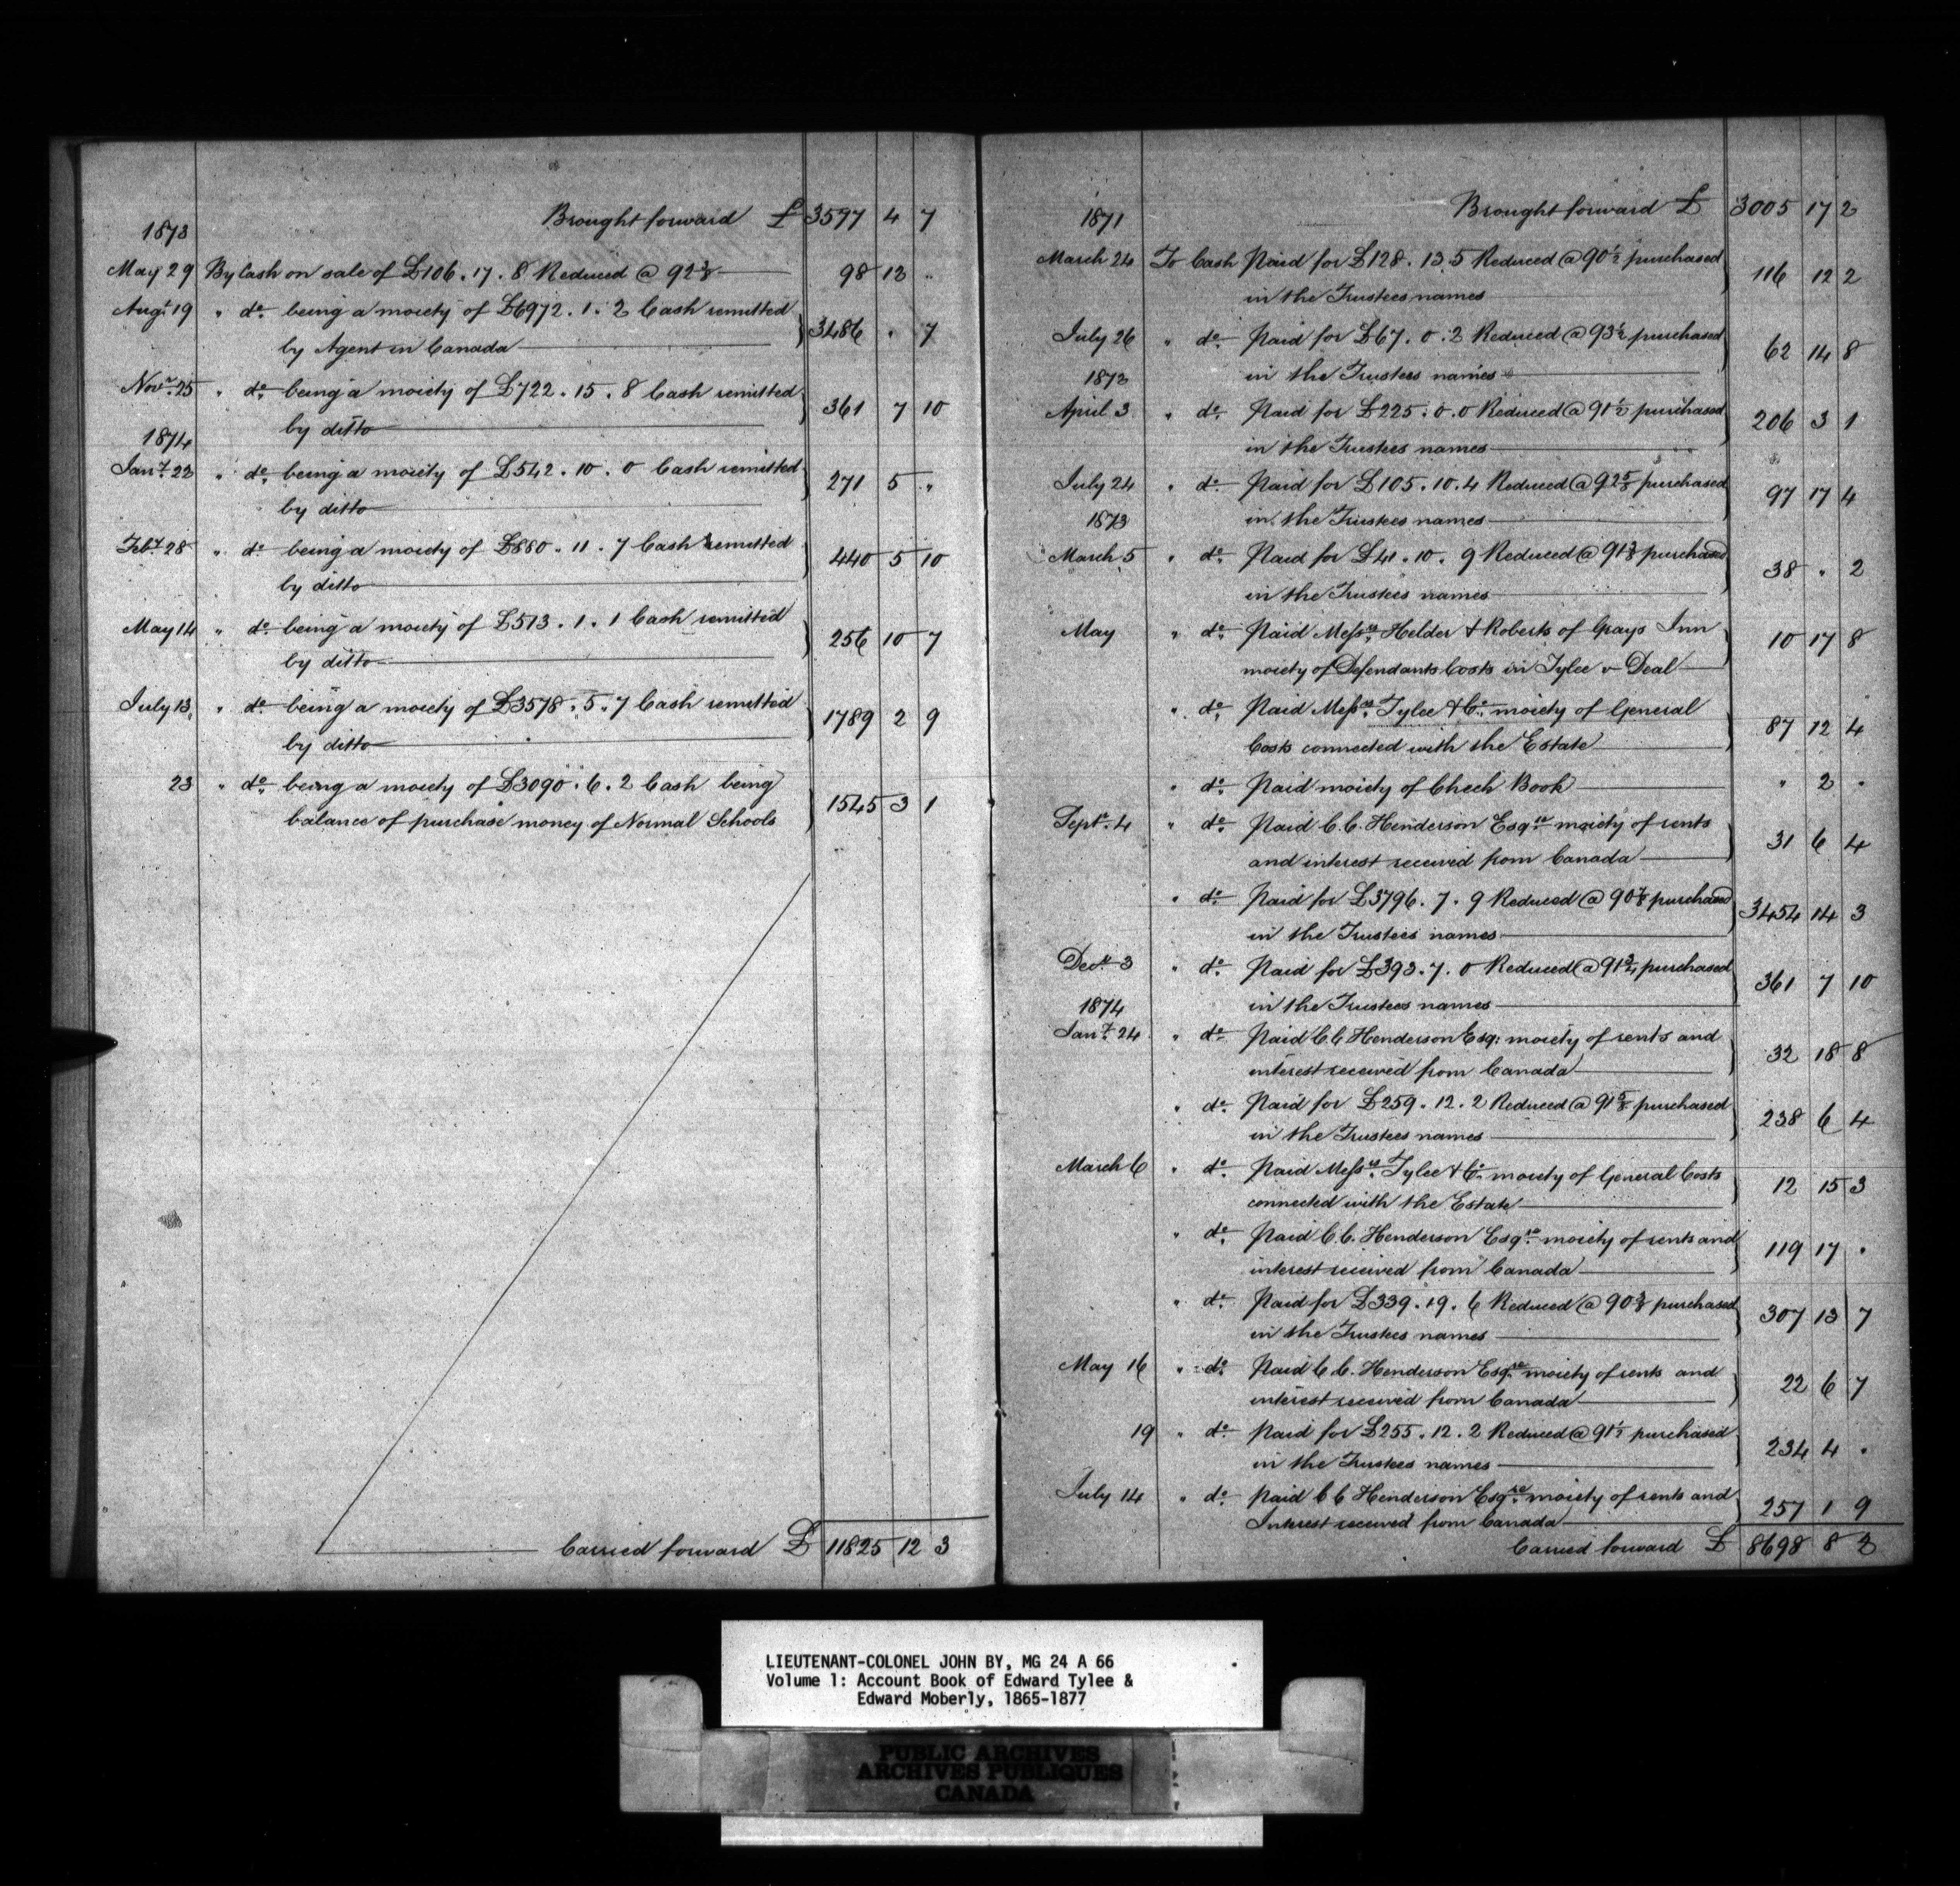 Brought forward £ 3597 4 7
1873
May 29 By Cash on sale of £106.17.8 Reduced @ 92 3/8 98 13 "
Augt 19 " do being a moiety of £6972.1.2 Cash remitted
by Agent in Canada 3486 " 7
Novr 25 " do being a moiety of £722.15.8 Cash remitted
by ditto 361 7 10
1874
Jany 23 " do being a moiety of £542.10.0 Cash remitted
by ditto 271 5 "
Feby 28 " do being a moiety of £880.11.7 Cash remitted
by ditto 440 5 10
May 14 " do being a moiety of £513.1.1 Cash remitted
by ditto 256 10 7
July 13 " do being a moiety of £3578.5.7 Cash remitted
by ditto 1789 2 9
23 " do being a moiety of £3090.6.2 Cash being
balance of purchase money of Normal Schools 1545 3 1
Carried forward £ 11825 12 3
Brought forward £ 3005 17 2
1871
March 24 To Cash Paid for £128.13.5 Reduced @ 90 1/2 purchased
in the Trustees names 116 12 2
July 26 " do Paid for £67.0.2 Reduced @ 93 1/2 purchased
in the Trustees names 62 14 8
1872
April 3 " do Paid for £225.0.0 Reduced @ 91 1/2 purchased
in the Trustees names 206 3 1
July 24 " do Paid for £105.10.4 Reduced @ 92 5/8 purchased
in the Trustees names 97 17 4
1873
March 5 " do Paid for £41.10.9 Reduced @ 91 3/8 purchased
in the Trustees names 38 " 2
May " do Paid Messrs Helder & Roberts of Grays Inn
moiety of Defendants Costs in Tylee v Deal 10 17 8
" do Paid Messrs Tylee & Co moiety of General
Costs connected with the Estate 87 12 4
" do Paid moiety of Check Book " 2 "
Septr 4 " do Paid C.C. Henderson Esqre moiety of rents
and interest received from Canada 31 6 4
" do Paid for £3796.7.9 Reduced @ 90 7/8 purchased
in the Trustees names 3454 14 3
Decr 3 " do Paid for £393.7.0 Reduced @ 91 3/4 purchased
in the Trustees names 361 7 10
1874
Jany 24 " do Paid C C Henderson Esq: moiety of rents and
interest received from Canada 32 18 8
" do Paid for £259.12.2 Reduced @ 91 5/8 purchased
in the Trustees names 238 6 4
March 6 " do Paid Messrs Tylee & Co moiety of General Costs
connected with the Estate 12 15 3
" do Paid C.C. Henderson Esqre moiety of rents and
interest received from Canada 119 17 "
" do Paid for £339.19.6 Reduced @ 90 3/8 purchased
in the Trustees names 307 13 7
May 16 " do Paid C C. Henderson Esqre moiety of rents and
interest received from Canada 22 6 7
19 " do Paid for £255.12.2 Reduced @ 91 1/2 purchased
in the Trustees names 234 4 "
July 14 " do Paid C C Henderson Esqre moiety of rents and
Interest received from Canada 257 1 9
Carried forward £ 8698 8 2
LIEUTENANT-COLONEL JOHN BY, MG 24 A 66
Volume 1: Account Book of Edward Tylee &
Edward Moberly, 1865-1877
PUBLIC ARCHIVES
ARCHIVES PUBLIQUES
CANADA